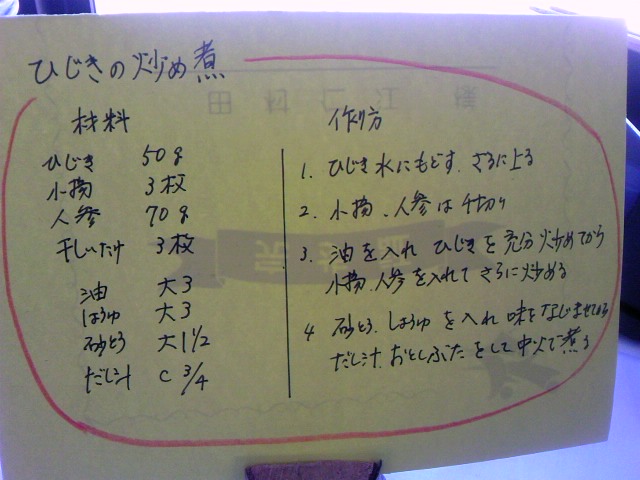 ひじきの炒め煮
材料
ひじき 50g
小揚 3枚
人参 70g
干しいたけ 3枚
油 大3
しょうゆ 大3
砂とう 大1½
だし汁 C 3/4
作り方
1. ひじき水にもどす、ざるに上る
2. 小揚、人参は千切り
3. 油を入れ ひじきを充分炒めてから
小揚、人参を入れて さらに炒める
4 砂とう、しょうゆを入れ 味をなじませてから
だし汁、おとしぶたをして中火で煮る
田村仁江様